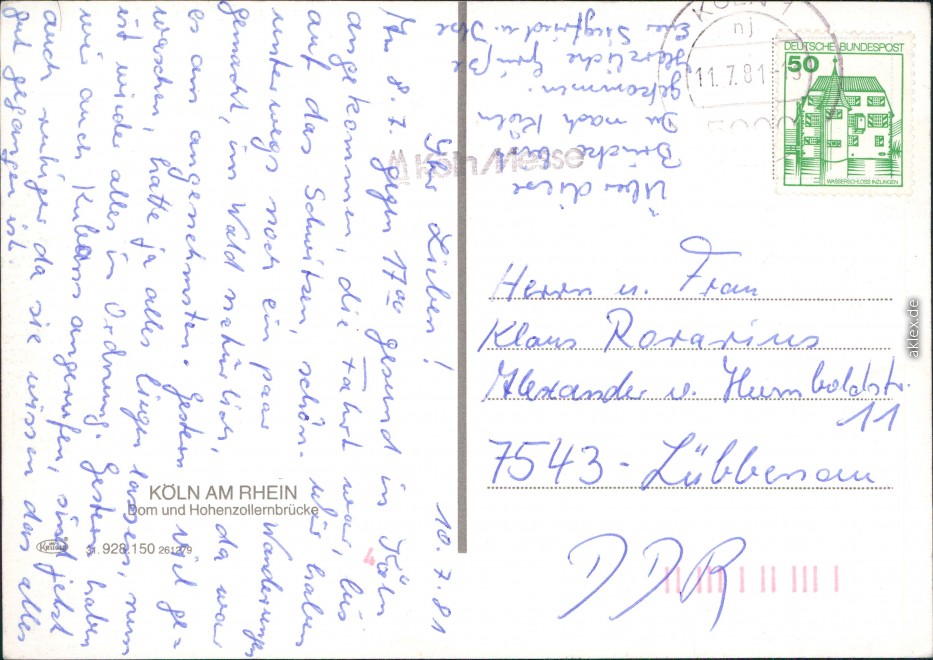 10.7.81
Ihr Lieben!
Am 8.7. gegen 17°° gesund in Köln
angekommen, die Fahrt war, bis
auf das Schwitzen, schön. Wir haben
unterwegs noch ein paar Wanderungen
gemacht, im Wald natürlich, da war
es am angenehmsten. Gestern viel ge=
waschen, hatte ja alles liegen lassen, nun
ist wieder alles in Ordnung. Gestern haben
wir auch angerufen, sind jetzt
auch ruhiger da sie wissen das alles
gut gegangen ist.
Über diese
Brücke bist
Du nach Köln
gekommen.
Herzliche Grüße
Eure Siegfried u. Ilse
KÖLN AM RHEIN
Dom und Hohenzollernbrücke
Krüger
928.150 261279
KÖLN 1
nj
11.7.81
Köln/Messe
DEUTSCHE BUNDESPOST
50
WASSERSCHLOSS INZLINGEN
Herrn u. Frau
Klaus Rorarius
Alexander v. Humboldtstr.
11
7543 - Lübbenau
DDR
4
aklex.de